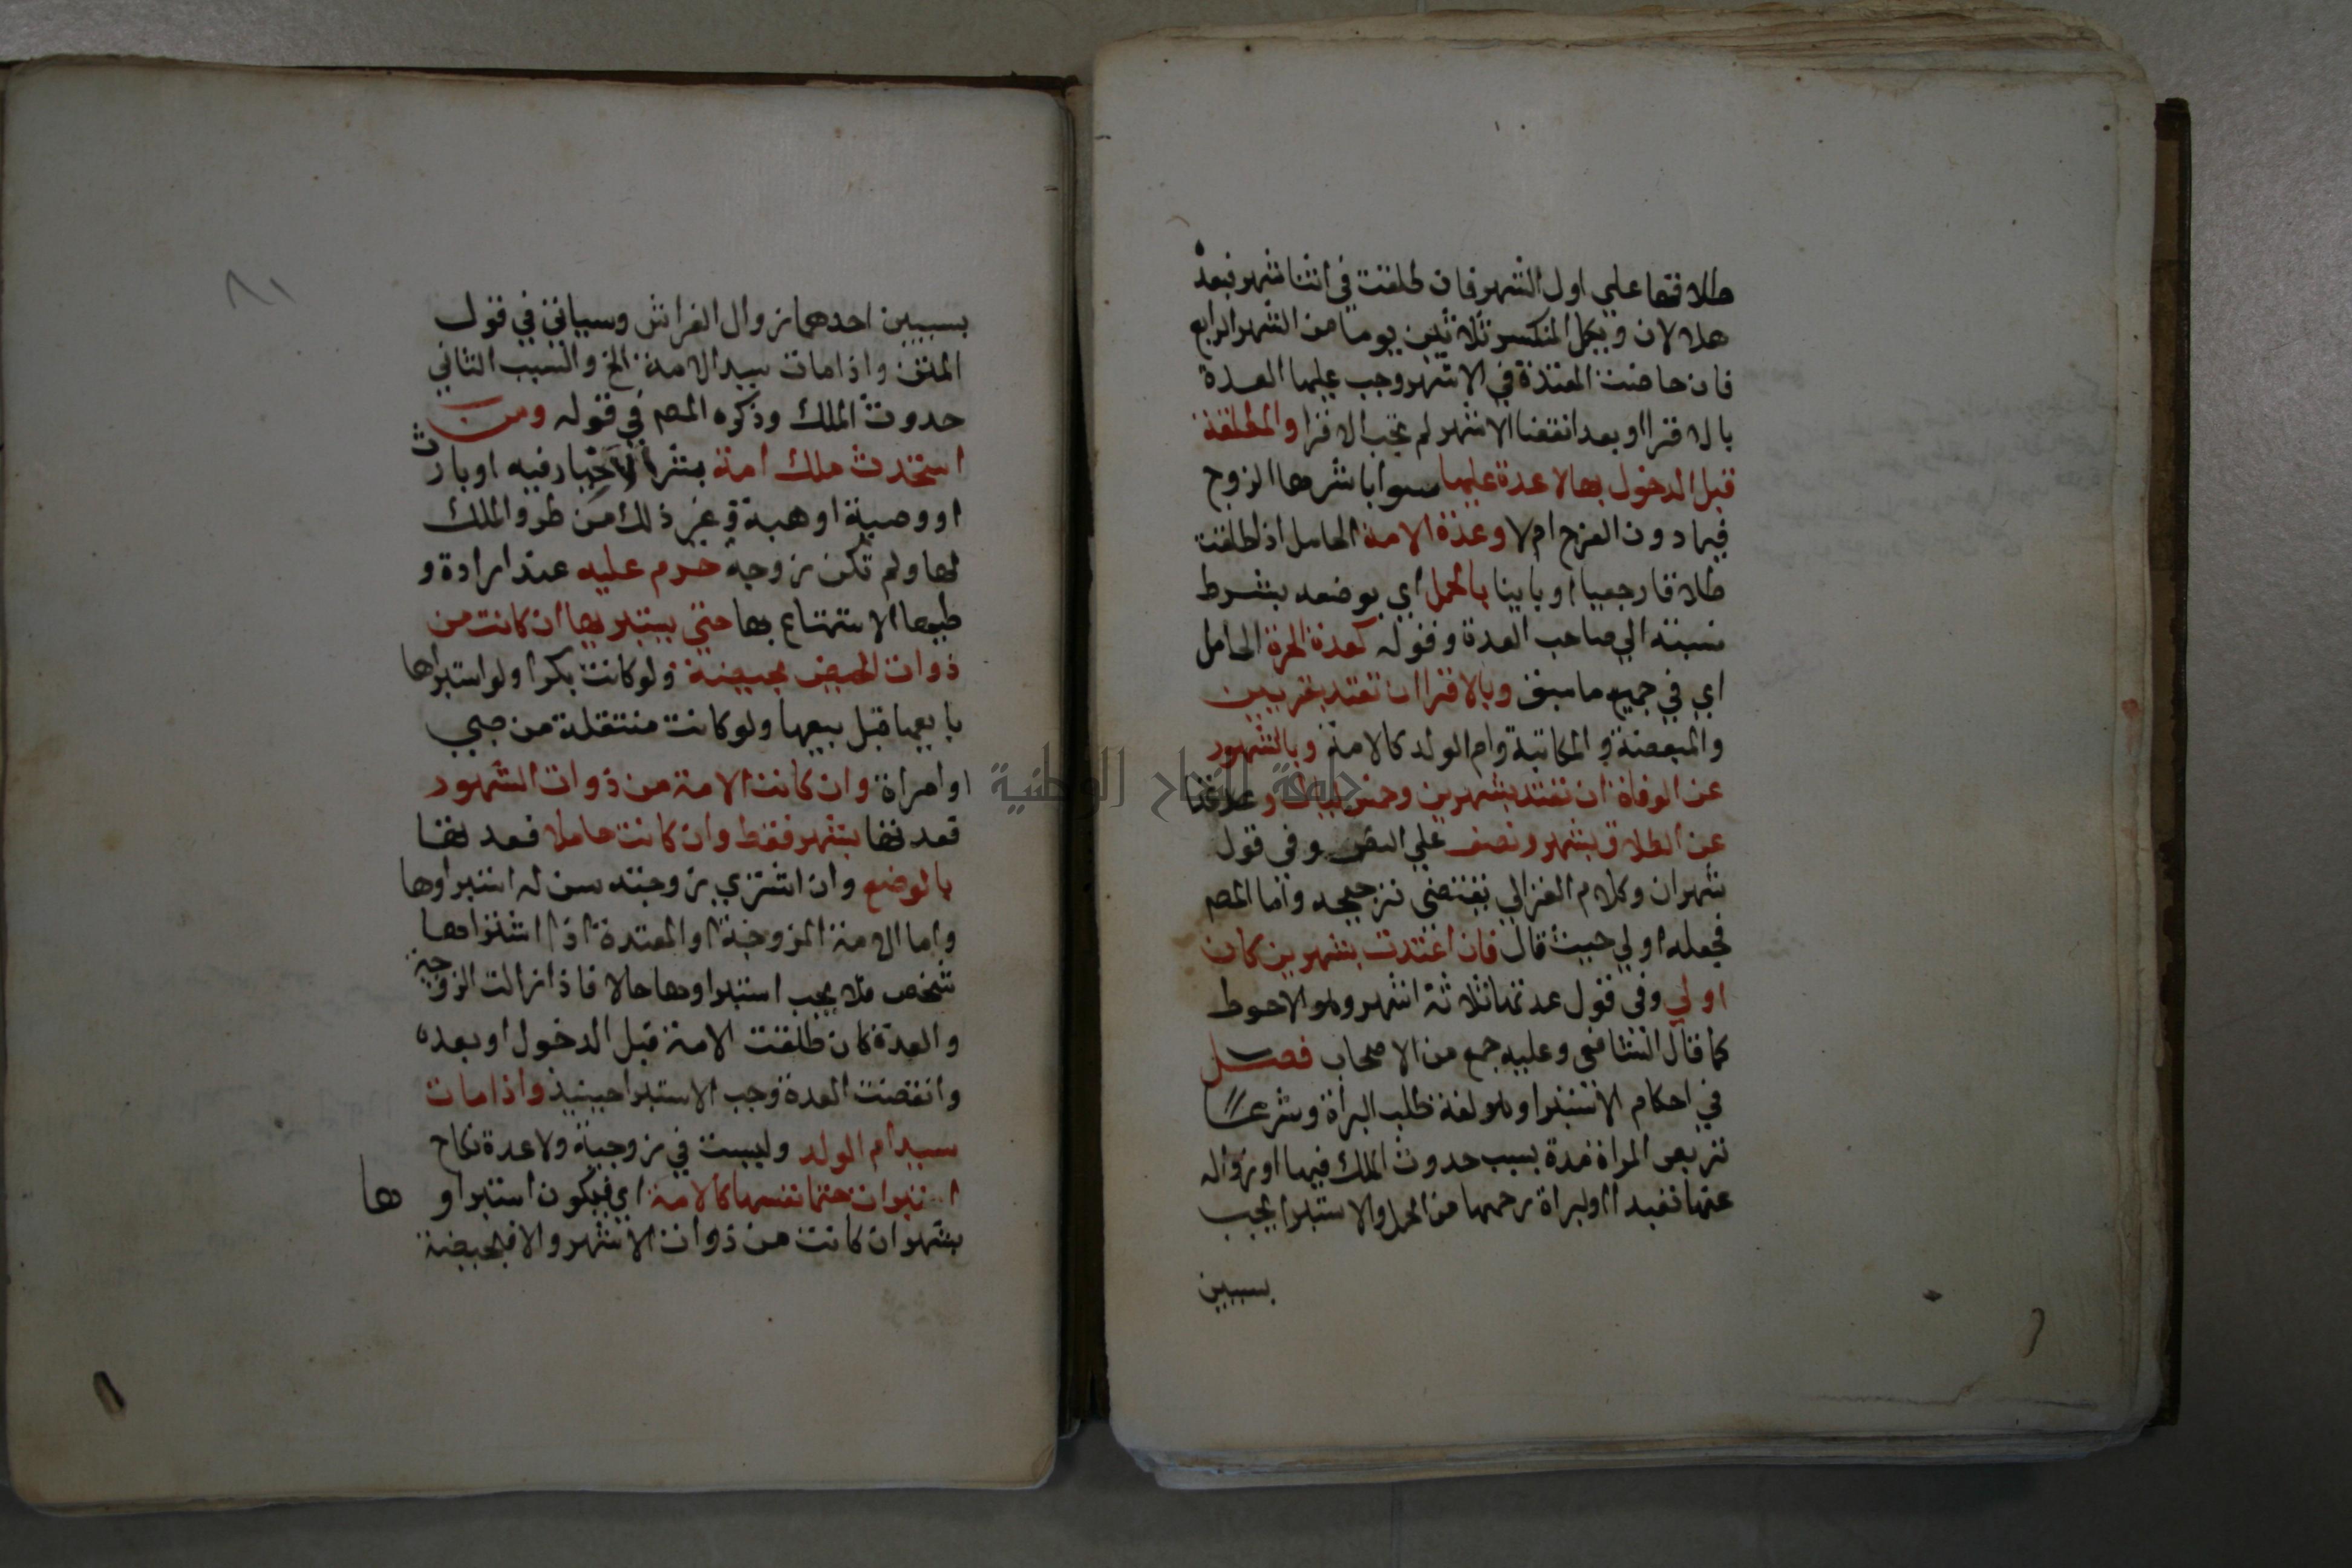 طلاقها علي اول الشهر فان طلقت في اثنا شهر فبعده
هلالان ويكمل المنكسر ثلاثين يوما من الشهر الرابع
فان حاضت المعتدة في الاشهر وجب عليها العدة
بالاقرا او بعد انقضا الاشهر لم تجب الاقرا والمطلقة
قبل الدخول بها لا عدة عليها سوا باشرها الزوج
فيما دون الفرج ام لا وعدة الامة الحامل اذا طلقت
طلاقا رجعيا او باينا بالحمل اي بوضعه بشرط
نسبته الي صاحب العدة وقوله كعدة الحرة الحامل
اي في جميع ما سبق وبالاقرا ان تعتد بقريين
والمبعضة والمكاتبة وام الولد كالامة وبالشهور
عن الوفاة ان تعتد بشهرين وخمس ليال و عدتها
عن الطلاق بشهر ونصف علي النص وفي قول
شهران وكلام الغزالي يقتضي ترجيحه واما المصم
فجعله اولي حيث قال فان اعتدت بشهرين كان
اولي وفي قول عدتها ثلاثة اشهر وهو الاحوط
كما قال الشافعي وعليه جمع من الاصحاب فصل
في احكام الاستبرا وهو لغة طلب البراة وشرعا
تربص المراة مدة بسبب حدوث الملك فيها او زواله
عنها تعبدا او لبراة رحمها من الحمل والاستبرا يجب
بسببين
٨١
بسببين احدهما زوال الفراش وسياتي في قول
المتن واذا مات سيد الامة الخ والسبب الثاني
حدوث الملك وذكره المصم في قوله ومن
استحدث ملك امة بشرا لا خيار فيه او بارث
او وصية او هبة او غير ذلك من طرو الملك
لها ولم تكن زوجة حرم عليه عند ارادة و
طيها الاستمتاع بها حتي يستبريها ان كانت من
ذوات الحيض بحيضة ولو كانت بكرا ولو استبراها
بايعها قبل بيعها ولو كانت منتقلة من صبي
او امراة وان كانت الامة من ذوات الشهور
فعدتها بشهر فقط وان كانت حاملا فعدتها
بالوضع وان اشتري زوجته سن له استبراوها
واما الامة المزوجة او المعتدة اذا اشتراها
شخص فلا يجب استبراوها حالا فاذا زالت الزوجية
والعدة كان طلقت الامة قبل الدخول او بعده
وانقضت العدة وجب الاستبرا حينيذ واذا مات
سيد ام الولد وليست في زوجية ولا عدة نكاح
استبرات حتما نفسها كالامة اي فيكون استبراوها
بشهر ان كانت من ذوات الاشهر والا فبحيضة
جامعة النجاح الوطنية